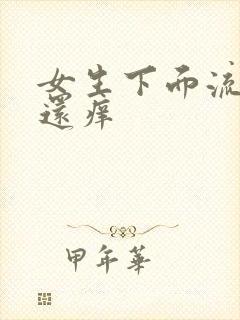 女生下而流
還痒
甲年華